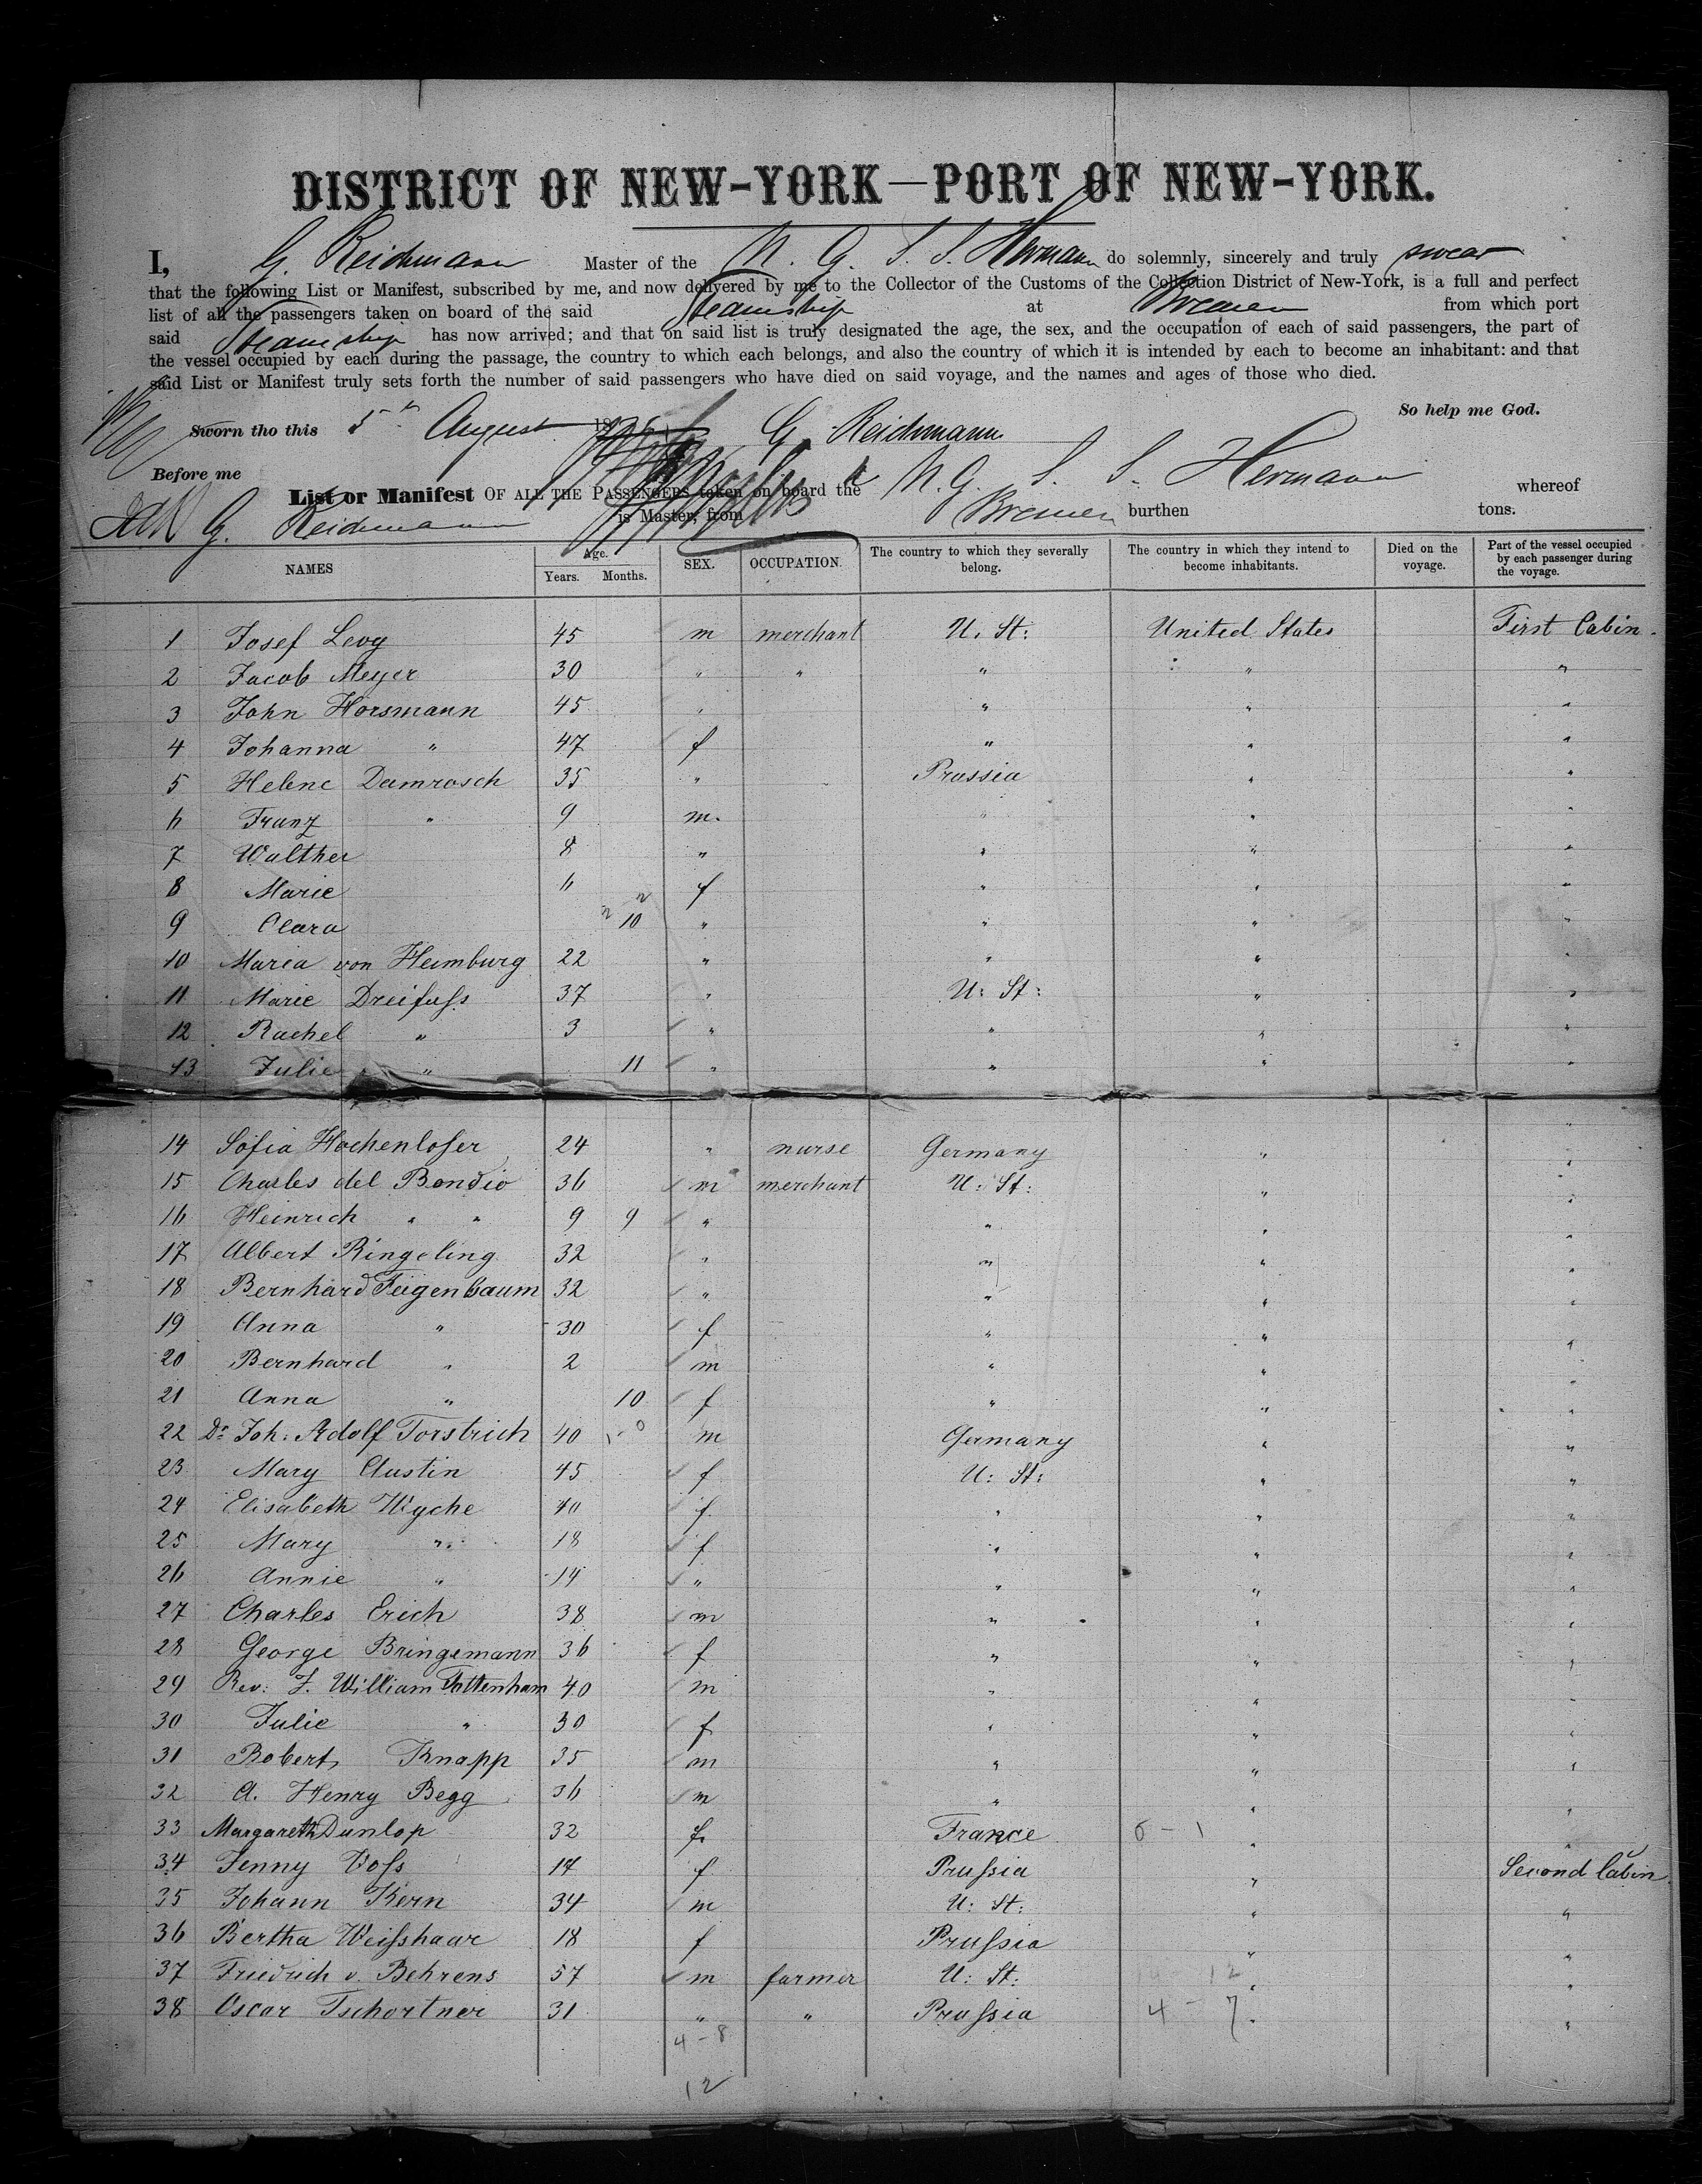 DISTRICT OF NEW-YORK—PORT OF NEW-YORK.
I, G. Reichmann Master of the N. G. S. S. Hermann do solemnly, sincerely and truly swear
that the following List or Manifest, subscribed by me, and now delivered by me to the Collector of the Customs of the Collection District of New-York, is a full and perfect
list of all the passengers taken on board of the said Steamship at Bremen from which port
said Steamship has now arrived; and that on said list is truly designated the age, the sex, and the occupation of each of said passengers, the part of
the vessel occupied by each during the passage, the country to which each belongs, and also the country of which it is intended by each to become an inhabitant: and that
said List or Manifest truly sets forth the number of said passengers who have died on said voyage, and the names and ages of those who died.
So help me God.
Sworn tho this 5th August 18 G. Reichmann
Before me
List or Manifest OF ALL THE PASSENGERS taken on board the N. G. S. S. Hermann whereof
G. Reichmann is Master, from Bremen burthen tons.
NAMES Age. Years. Months. SEX. OCCUPATION. The country to which they severally belong. The country in which they intend to become inhabitants. Died on the voyage. Part of the vessel occupied by each passenger during the voyage.
1 Josef Levy 45 m merchant U. St: United States First Cabin.
2 Jacob Meyer 30 " " " " "
3 John Horsmann 45 " " " "
4 Johanna " 47 f " " "
5 Helene Damrosch 35 " Prussia " "
6 Franz " 9 m. " " "
7 Walther 8 " " " "
8 Marie 6 f " " "
9 Clara 10 " " " "
10 Maria von Heimburg 22 " " " "
11 Marie Dreifuss 37 " U: St: " "
12 Rachel " 3 " " " "
13 Julie " 11 " " " "
14 Sofia Hochenloser 24 " nurse Germany " "
15 Charles del Bondio 36 m merchant U: St: " "
16 Heinrich " " 9 9 " " " "
17 Albert Ringeling 32 " " " "
18 Bernhard Feigenbaum 32 " " " "
19 Anna " 30 f " " "
20 Bernhard " 2 m " " "
21 Anna " 10 f " " "
22 Dr. Joh: Adolf Torstrich 40 m Germany " "
23 Mary Austin 45 f U: St: " "
24 Elisabeth Wyche 40 f " " "
25 Mary " 18 f " " "
26 Annie " 14 " " " "
27 Charles Erich 38 m " " "
28 George Bringemann 36 f " " "
29 Rev: F. William Tottenham 40 m " " "
30 Julie " 30 f " " "
31 Robert Knapp 35 m " " "
32 A. Henry Begg 36 m " " "
33 Margareth Dunlop 32 f. France 6 - 1 " "
34 Jenny Voss 17 f Prussia " Second Cabin.
35 Johann Kern 34 m U: St: " "
36 Bertha Weisshaar 18 f Prussia " "
37 Friedrich v. Behrens 57 m farmer U: St: 12 " "
38 Oscar Tschortner 31 " " Prussia 4 - 7 " "
4 - 8
12